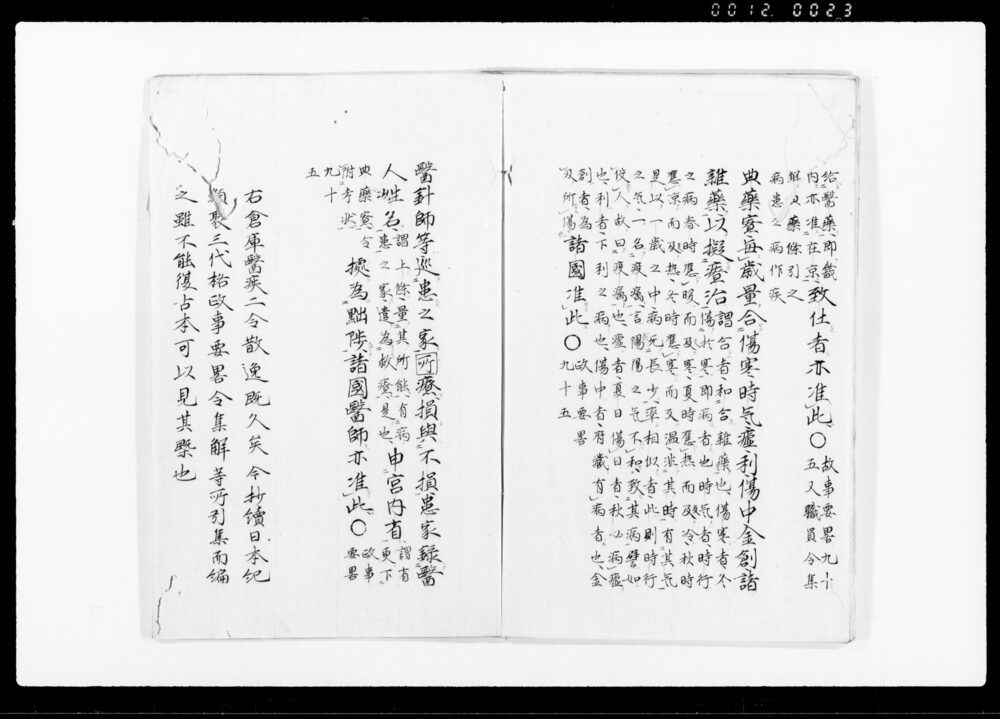 0012 0023
給醫藥即畿
內亦准在京
致仕者亦准此〇
政事要畧九十
五又職員令集
解及藥條引之
病患之病作疾
典藥寮每歲量合傷寒時氣瘧利傷中金創諸
雜藥以擬療治
謂合者和合雜藥也傷寒者冬
傷於寒即病者也時氣者時行
之病春時應暖而反寒夏時應熱而反冷秋時
應凉而反熱冬時應寒而反温非其時有其氣
是以一歲之中病无長少率相似者此則時行
之氣一名疫癘言陽陽之氣不和致其病譬如
役人故曰疫癘也瘧者夏日傷日者秋必病瘧
也利者下利之病也傷中者府藏有病者也金
創者為
刃所傷
諸國准此〇
政事要畧
九十五
醫針師等巡患之家所療損與不損患家錄醫
人姓名
謂上條量其所能有病
患之家遣為救療是也
申宮内省
謂省
更下
典藥寮令
附考状
據為黜陟諸國醫師亦准此〇
政事
要畧
九十
五
右倉庫醫疾二令散逸既久矣今抄續日本紀
類聚三代格政事要畧令集解等所引集而編
之雖不能復古本可以見其槩也